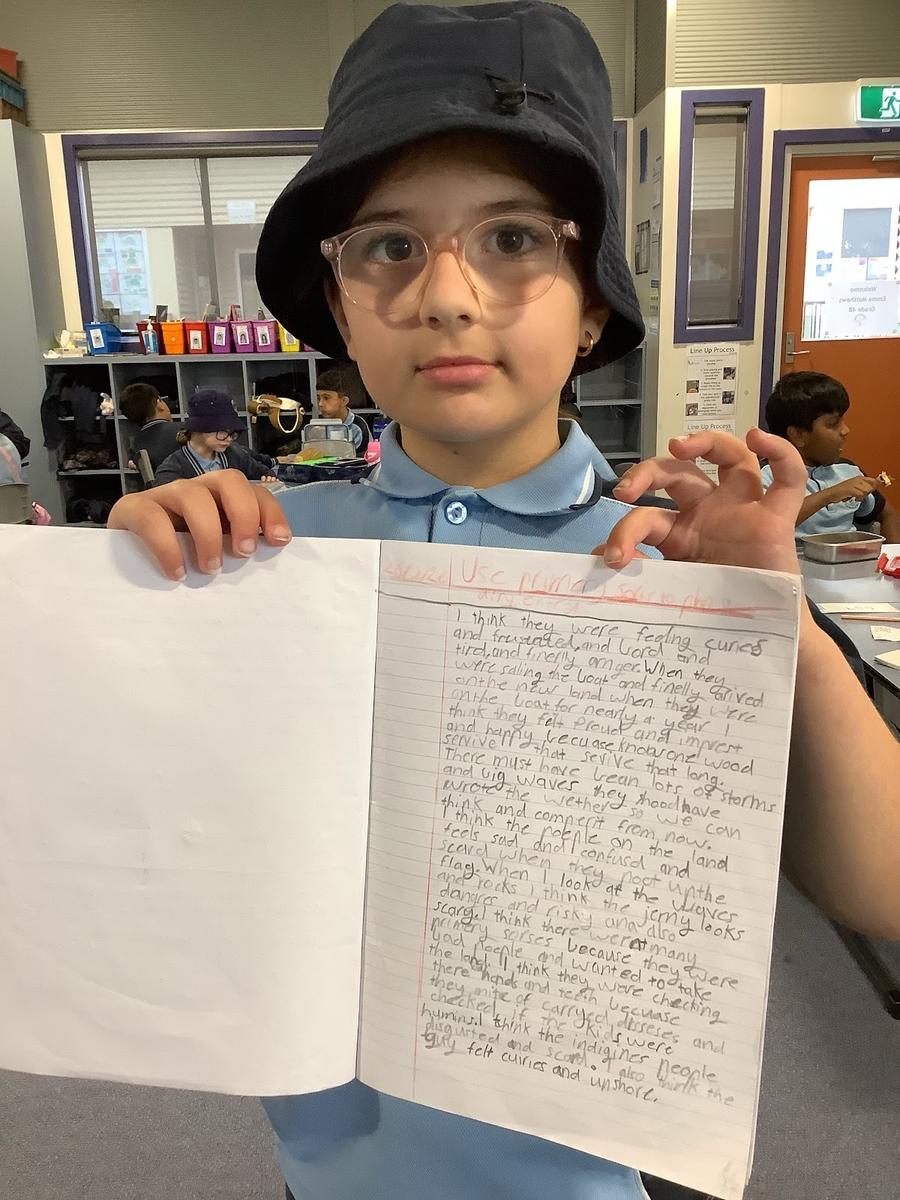 Use primary
I think they were feeling curies
and frustrated, and bord and
tird, and finerly anger. When they
were saling the boat and finelly arived
onthe new land when they were
onthe boat for nearly a year I
think they felt Proud and imprest
and happy becuase knowone wood
servive that servive that long.
There must have bean lots of storms
and big waves they shood have
wrote the wether so we can
think and comperit from now.
I think the poeple on the land
feels sad and confusd and
scared when they poot upthe
flag. When I look at the waves
and rocks I think the jerny looks
dangres and risky and also
scary. I think there werent many
primery sorses because they were
bad poeple and wanted to take
the land. I think they were checking
there hands and teeth becuase
they mite of carryed disseses and
checked if the kids were
hymins. I think the indigines people
disgusted and scard. I also think the
guy felt curries and unshore.
Line Up Process
Line Up Process
Welcome
Emma Matthews
Grade 4B